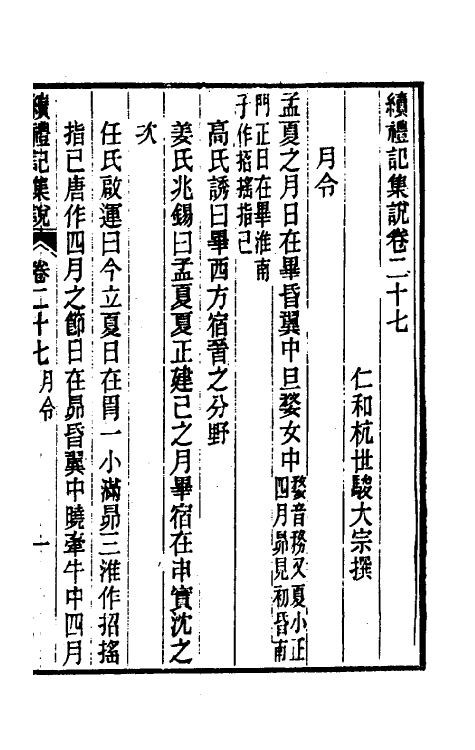 續禮記集說卷二十七
仁和杭世駿大宗撰
月令
孟夏之月日在畢昏翼中旦婺女中婺音務又夏小正
四月昴見初昏南
門正日在畢淮南
子作招搖指己
高氏誘曰畢西方宿晉之分野
姜氏兆錫曰孟夏夏正建巳之月畢宿在申實沈之
次
任氏啟運曰今立夏日在胃一小滿昴三淮作招搖
指巳唐作四月之節日在昴昏翼中曉牽牛中四月
續禮記集說 卷二十七月令 一